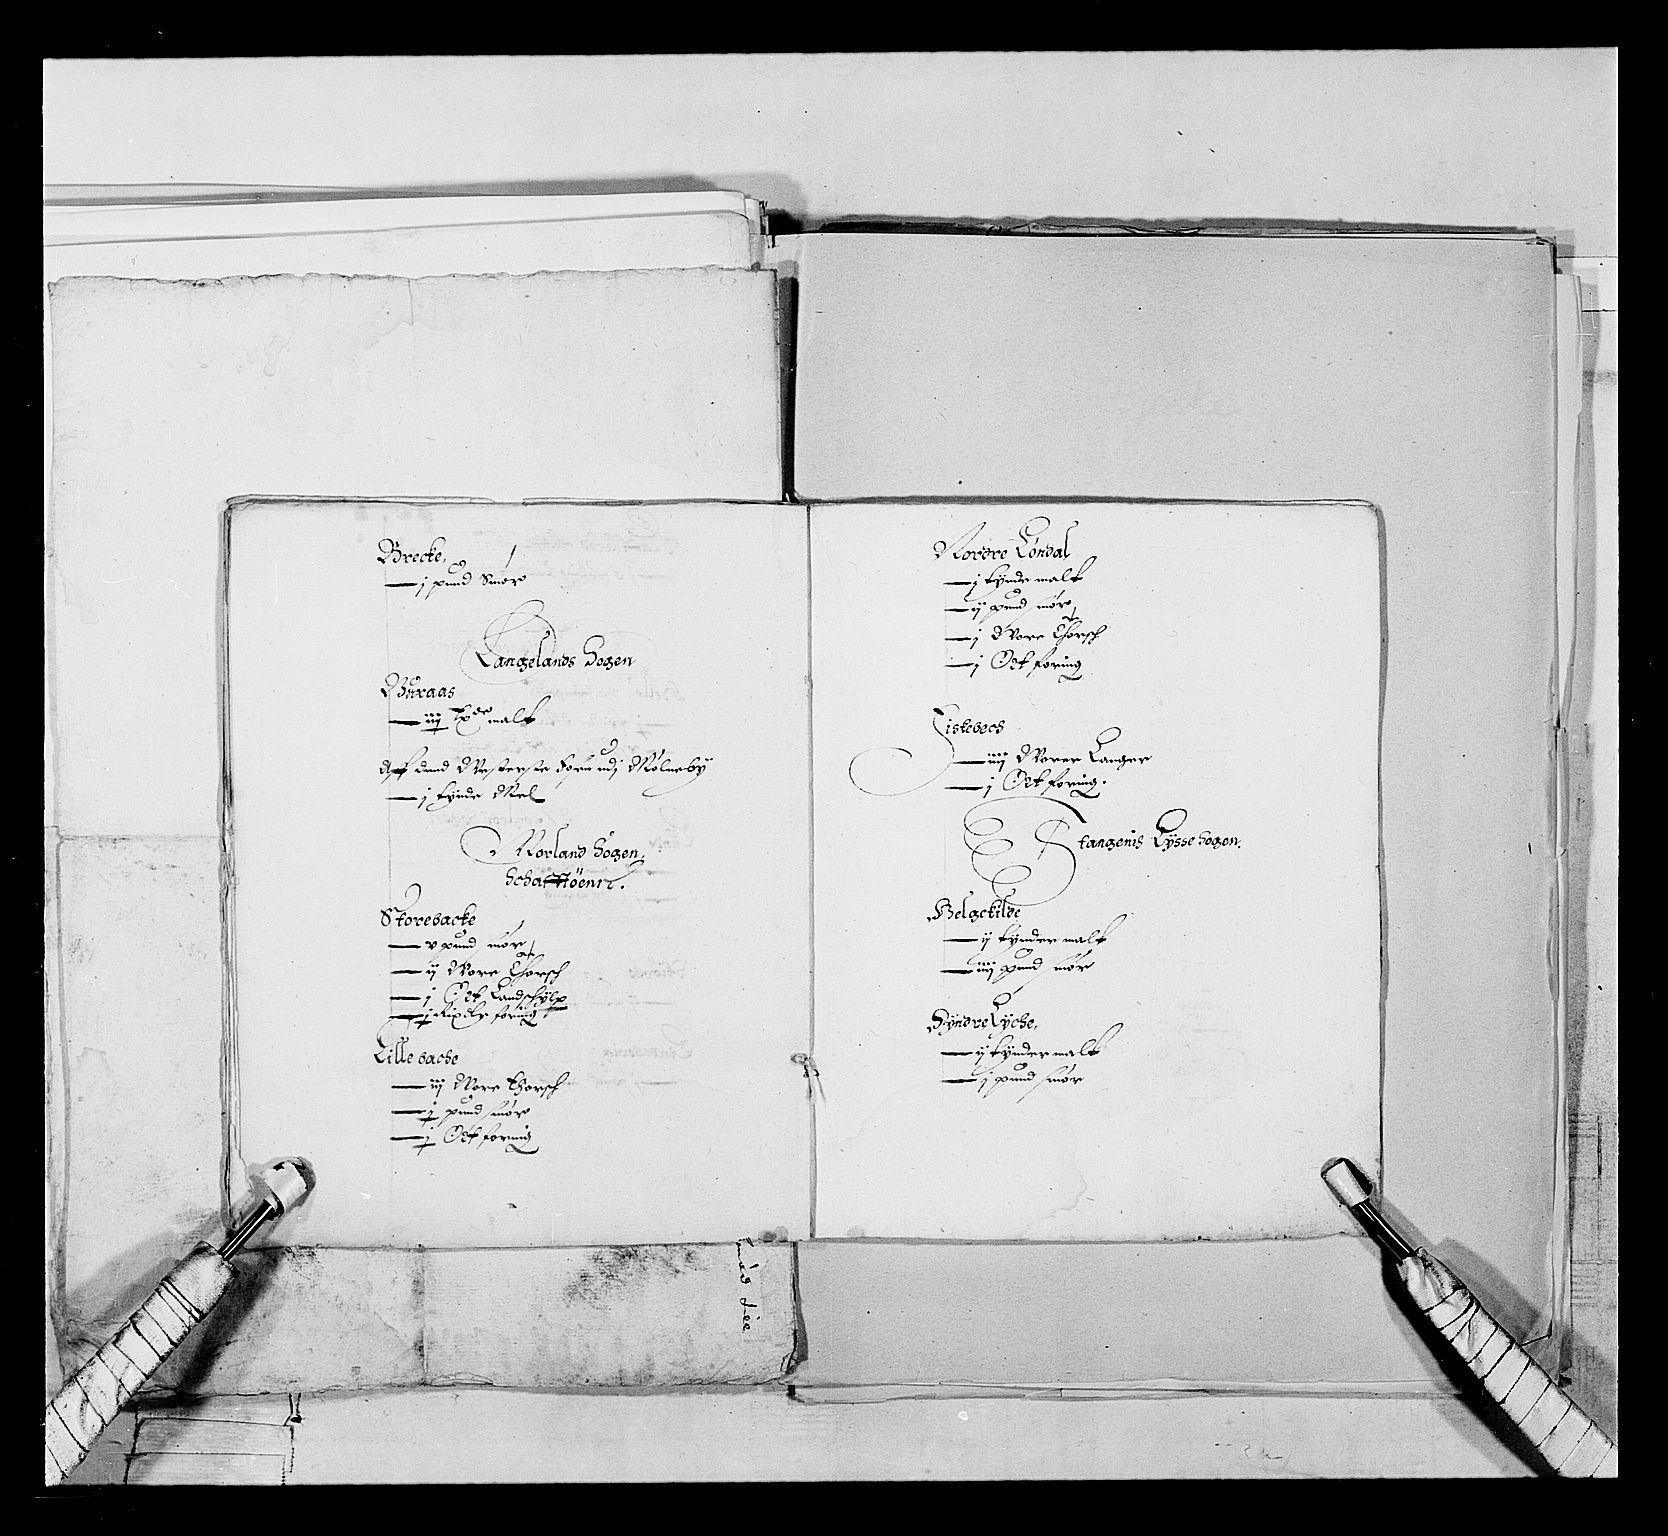 Brecke,
j pund Smør
Langelands Sogen
Buraas
iij tdr malt
Aff dend Westerste Gorn udj Mölneby
j tynde Mel
Norland Sogen,
Storebacke
v pund smør
ij Wore Thorsch
j Ort Landschÿlp
j Rixdlr foring
Lille backe
iij Wore Thorsch
j pund smør
j Ort foring
Nordre Löndal
j tynde malt
ij pund smør
j Wore Thorsch
j Ort foring
Fistebech
iiij Worer Langer
j Ort foring.
Stangenis Lÿsse Sogen.
Helgekilde
ij tynder malt
iiij pund smør
Syndre Lyche,
ij tynder malt
j pund smør